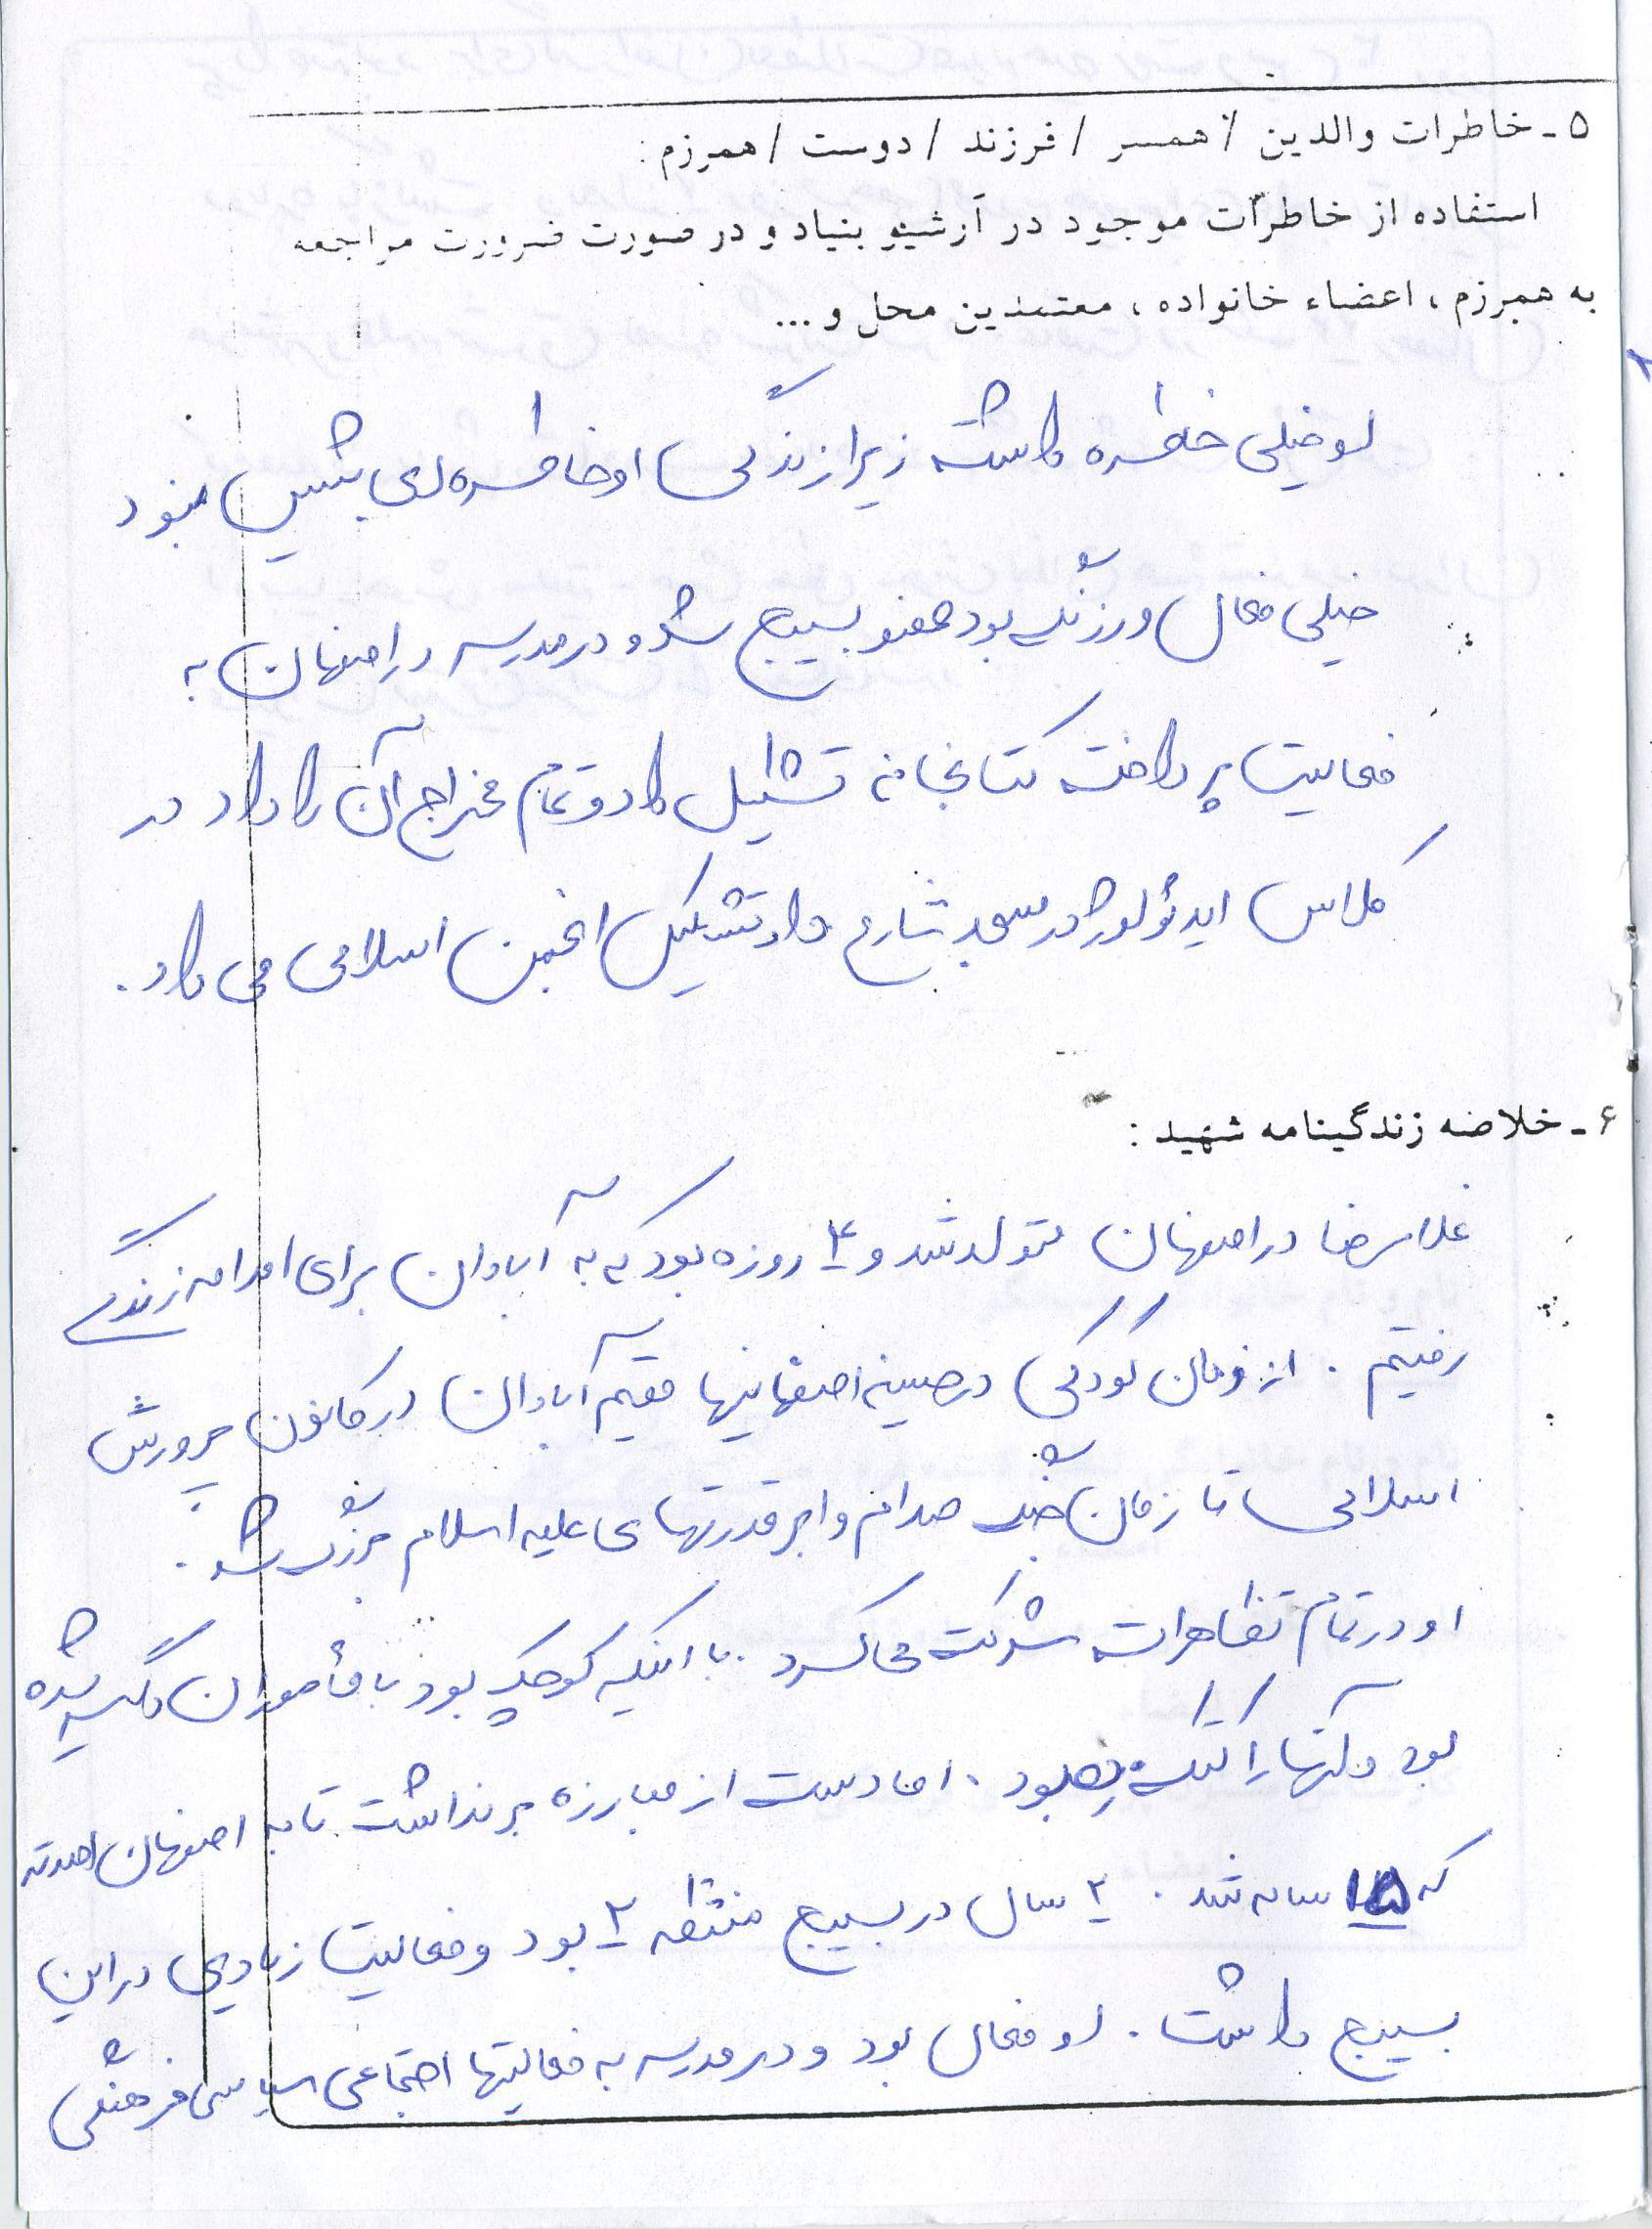 ۵ - خاطرات والدین / همسر / فرزند / دوست / همرزم :
استفاده از خاطرات موجود در آرشیو بنیاد و در صورت ضرورت مراجعه
به همرزم ، اعضاء خانواده ، معتمدین محل و ...
او خیلی خاطره داشته زیرا زندگی او خاطره‌ای بیش نبود
خیلی فعال و ورزشی بود عضو بسیج شد و در مدرسه در اصفهان به
فعالیت پرداخت کتابخانه تشکیل داد و تمام مخراج آن را داد در
کلاس ایدئولوژ در مسجد شارع داد تشکیل انجمن اسلامی می داد .
۶ - خلاصه زندگینامه شهید :
غلامرضا در اصفهان متولد شد و ۴ روزه بود که به آبادان برای ادامه زندگی
رفتیم . از زمان کودکی در حسینیه اصفهانیها مقیم آبادان در کانون پرورش
اسلامی تا زمان جنگ صدام و ابر قدرتهای علیه اسلام بزرگ شد .
او در تمام تظاهرات شرکت می کرد . با اینکه کوچک بود با مأموران درگیر شده
بود و آنها را کتک بود . اما دست از مبارزه بر نداشت تا به اصفهان آمد
که ۱۵ ساله شد . ۲ سال در بسیج منطقه ۲ بود و فعالیت زیادی در این
بسیج داشت . او فعال بود و در مدرسه به فعالیتها اجتماعی سیاسی فرهنگی